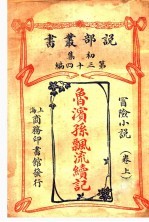 說部叢書
初集
第三十四編
冒險小說
(卷上)
魯濱孫飄流續記
上海
商務印書館發行